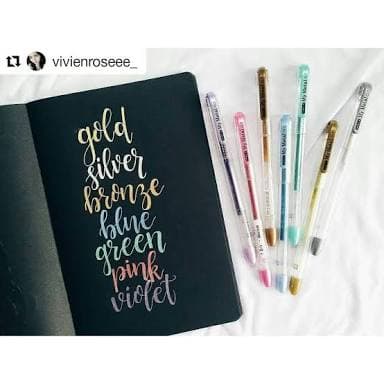 vivienroseee_
gold
silver
bronze
blue
green
pink
violet